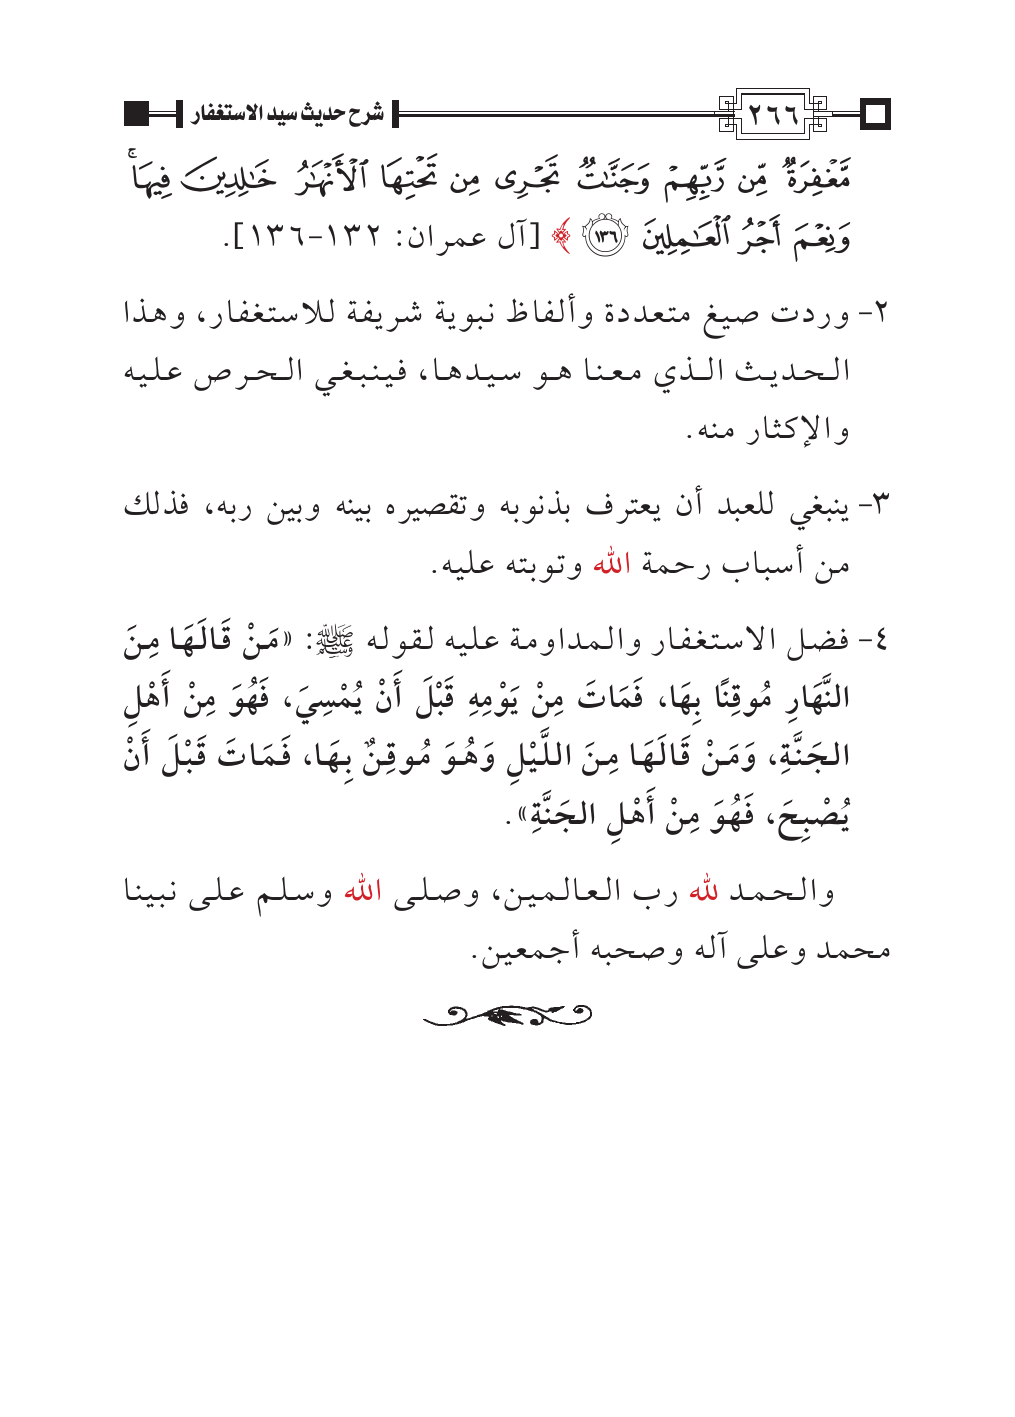 ٢٦٦ شرح حديث سيد الاستغفار
مَّغۡفِرَةٞ مِّن رَّبِّهِمۡ وَجَنَّٰتٞ تَجۡرِي مِن تَحۡتِهَا ٱلۡأَنۡهَٰرُ خَٰلِدِينَ فِيهَاۚ
وَنِعۡمَ أَجۡرُ ٱلۡعَٰمِلِينَ ١٣٦ ﴾ [آل عمران: ١٣٢-١٣٦].
٢- وردت صيغ متعددة وألفاظ نبوية شريفة للاستغفار، وهذا
الحديث الذي معنا هو سيدها، فينبغي الحرص عليه
والإكثار منه.
٣- ينبغي للعبد أن يعترف بذنوبه وتقصيره بينه وبين ربه، فذلك
من أسباب رحمة الله وتوبته عليه.
٤- فضل الاستغفار والمداومة عليه لقوله ﷺ: «مَنْ قَالَهَا مِنَ
النَّهَارِ مُوقِنًا بِهَا، فَمَاتَ مِنْ يَوْمِهِ قَبْلَ أَنْ يُمْسِيَ، فَهُوَ مِنْ أَهْلِ
الجَنَّةِ، وَمَنْ قَالَهَا مِنَ اللَّيْلِ وَهُوَ مُوقِنٌ بِهَا، فَمَاتَ قَبْلَ أَنْ
يُصْبِحَ، فَهُوَ مِنْ أَهْلِ الجَنَّةِ».
والحمد لله رب العالمين، وصلى الله وسلم على نبينا
محمد وعلى آله وصحبه أجمعين.